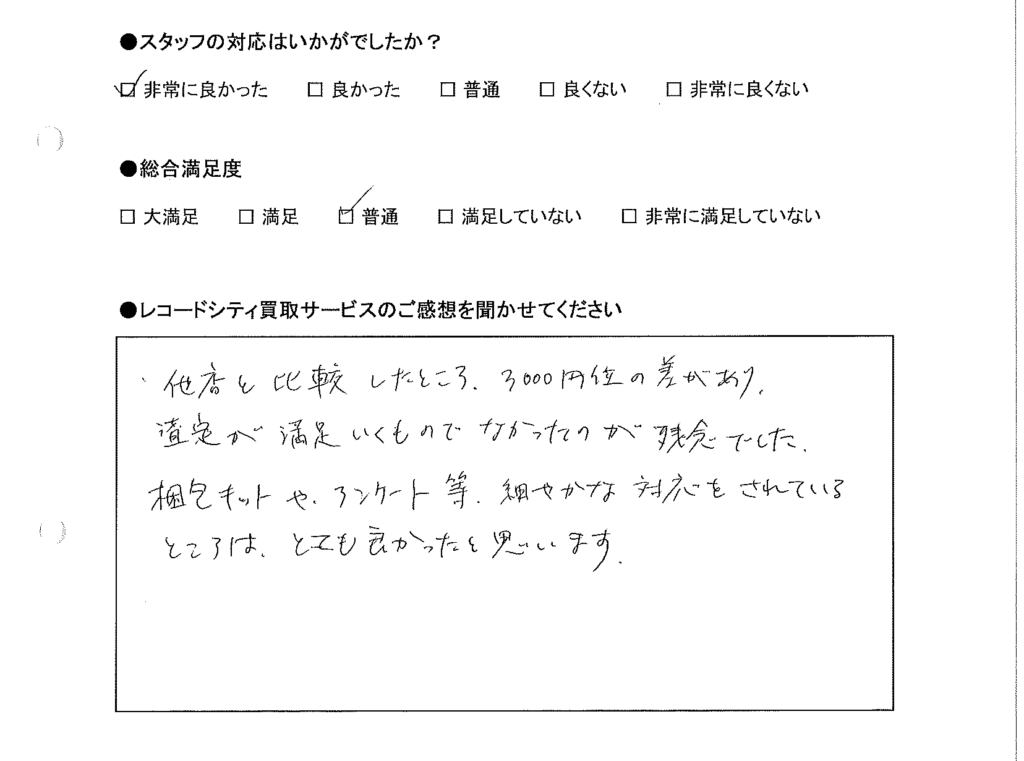 ●スタッフの対応はいかがでしたか？
☑ 非常に良かった □ 良かった □ 普通 □ 良くない □ 非常に良くない
●総合満足度
□ 大満足 □ 満足 ☑ 普通 □ 満足していない □ 非常に満足していない
●レコードシティ買取サービスのご感想を聞かせてください
他店と比較したところ、3000円位の差があり、
査定が満足いくものでなかったのが残念でした。
梱包キットや、アンケート等、細やかな対応をされている
ところは、とても良かったと思います。